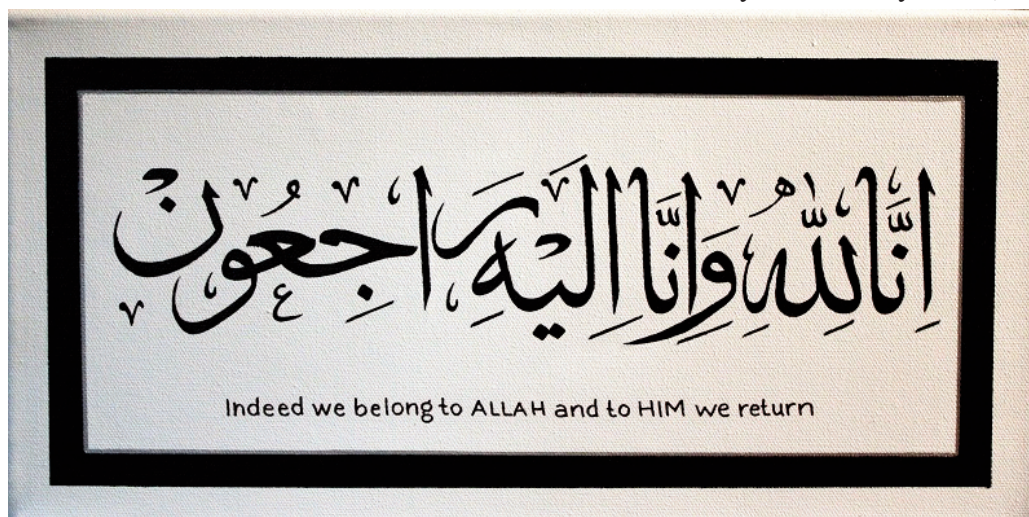 اِنَّا لِلّٰهِ وَاِنَّا اِلَيْهِ رَاجِعُونْ
Indeed we belong to ALLAH and to HIM we return